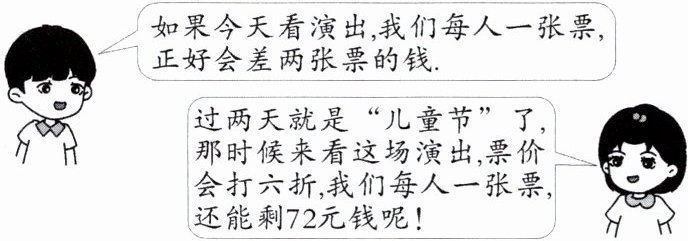 如果今天看演出,我们每人一张票,
正好会差两张票的钱.
过两天就是“儿童节”了,
那时候来看这场演出,票价
会打六折,我们每人一张票,
还能剩72元钱呢!